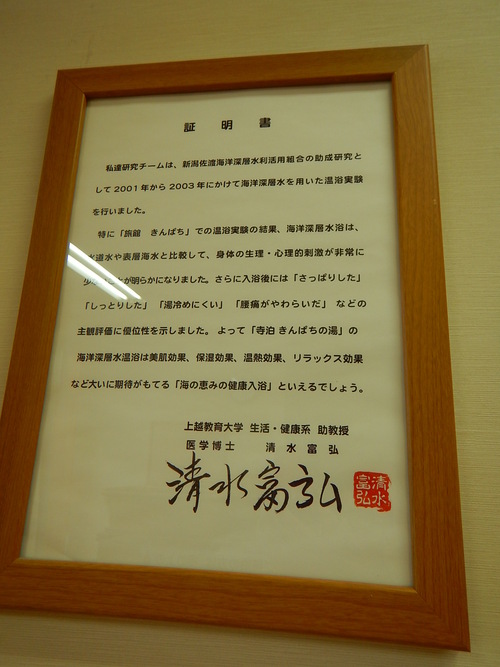 証明書
私達研究チームは、新潟佐渡海洋深層水利活用組合の助成研究と
して2001年から2003年にかけて海洋深層水を用いた温浴実験
を行いました。
特に「旅館 きんぱち」での温浴実験の結果、海洋深層水浴は、
水道水や表層海水と比較して、身体の生理・心理的刺激が非常に
とが明らかになりました。さらに入浴後には「さっぱりした」
「しっとりした」「湯冷めにくい」「腰痛がやわらいだ」 などの
主観評価に優位性を示しました。よって「寺泊 きんぱちの湯」の
海洋深層水温浴は美肌効果、保湿効果、温熱効果、リラックス効果
など大いに期待がもてる「海の恵みの健康入浴」といえるでしょう。
上越教育大学 生活・健康系 助教授
医学博士 清水富弘
清水富弘
清水富弘